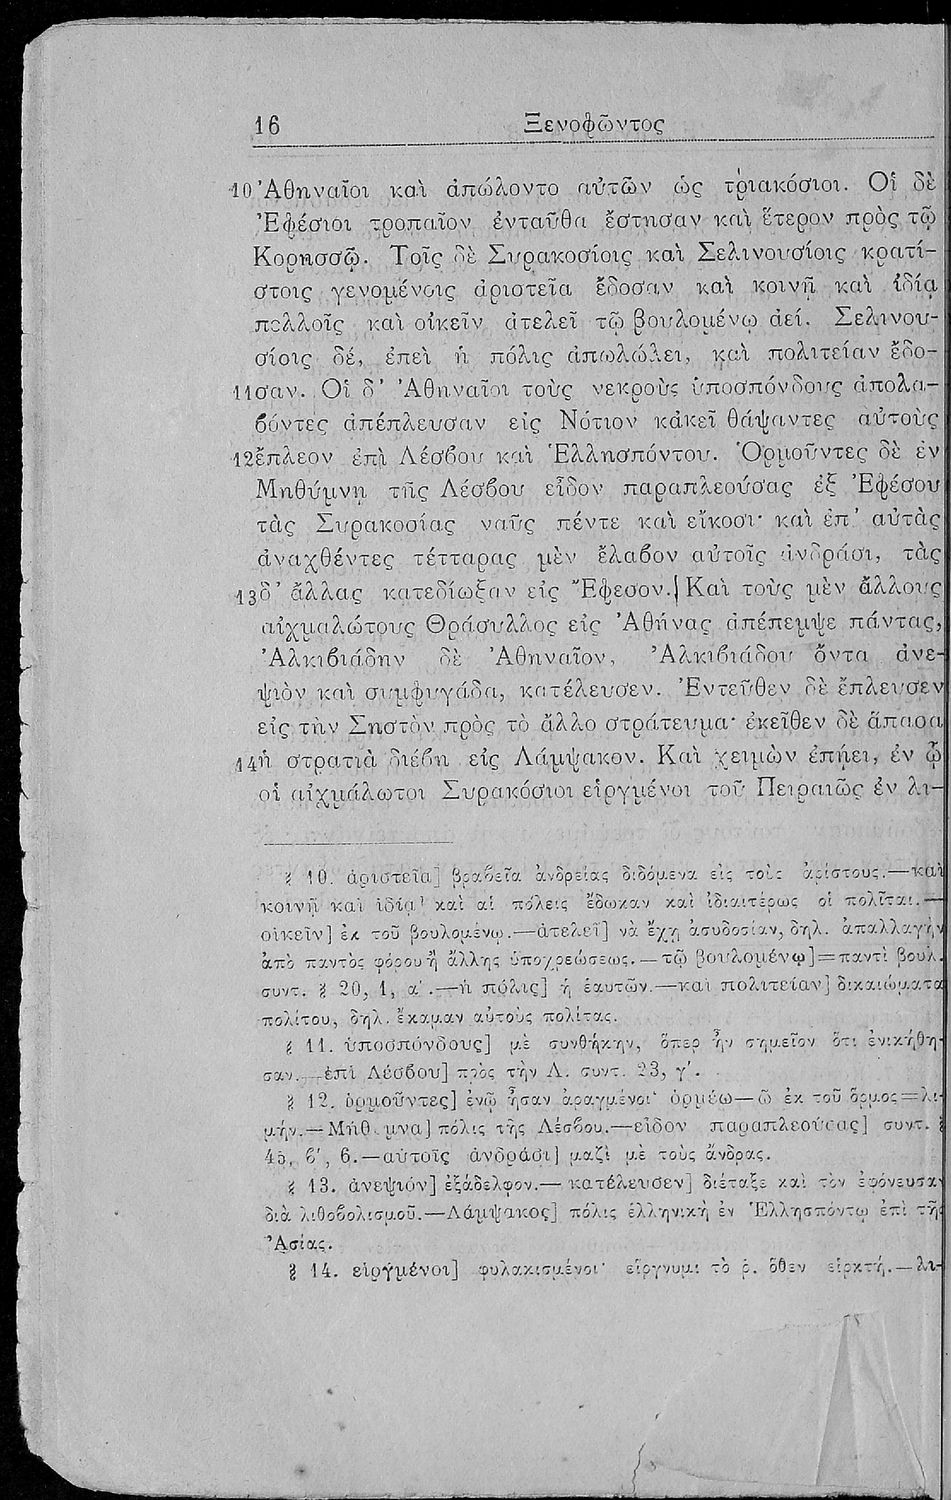 16 Ξενοφῶντος
10 Ἀθηναῖοι καὶ ἀπώλοντο αὐτῶν ὡς τριακόσιοι. Οἱ δὲ
Ἐφέσιοι τροπαῖον ἐνταῦθα ἔστησαν καὶ ἕτερον πρὸς τῷ
Κορησσῷ. Τοῖς δὲ Συρακοσίοις καὶ Σελινουσίοις κρατί-
στοις γενομένοις ἀριστεῖα ἔδοσαν καὶ κοινῇ καὶ ἰδίᾳ
πολλοῖς καὶ οἰκεῖν ἀτελεῖ τῷ βουλομένῳ ἀεί. Σελινου-
σίοις δέ, ἐπεὶ ἡ πόλις ἀπωλώλει, καὶ πολιτείαν ἔδο-
11 σαν. Οἱ δ' Ἀθηναῖοι τοὺς νεκροὺς ὑποσπόνδους ἀπολα-
βόντες ἀπέπλευσαν εἰς Νότιον κἀκεῖ θάψαντες αὐτοὺς
12 ἔπλεον ἐπὶ Λέσβου καὶ Ἑλλησπόντου. Ὁρμοῦντες δὲ ἐν
Μηθύμνῃ τῆς Λέσβου εἶδον παραπλεούσας ἐξ Ἐφέσου
τὰς Συρακοσίας ναῦς πέντε καὶ εἴκοσι· καὶ ἐπ' αὐτὰς
ἀναχθέντες τέτταρας μὲν ἔλαβον αὐτοῖς ἀνδράσι, τὰς
13 δ' ἄλλας κατεδίωξαν εἰς Ἔφεσον. Καὶ τοὺς μὲν ἄλλους
αἰχμαλώτους Θράσυλλος εἰς Ἀθήνας ἀπέπεμψε πάντας,
Ἀλκιβιάδην δὲ Ἀθηναῖον, Ἀλκιβιάδου ὄντα ἀνε-
ψιὸν καὶ συμφυγάδα, κατέλευσεν. Ἐντεῦθεν δὲ ἔπλευσεν
εἰς τὴν Σηστὸν πρὸς τὸ ἄλλο στράτευμα· ἐκεῖθεν δὲ ἅπασα
14 ἡ στρατιὰ διέβη εἰς Λάμψακον. Καὶ χειμὼν ἐπῄει, ἐν ᾧ
οἱ αἰχμάλωτοι Συρακόσιοι εἱργμένοι τοῦ Πειραιῶς ἐν λι-
§ 10. ἀριστεῖα] βραβεῖα ἀνδρείας διδόμενα εἰς τοὺς ἀρίστους.—καὶ
κοινῇ καὶ ἰδίᾳ] καὶ αἱ πόλεις ἔδωκαν καὶ ἰδιαιτέρως οἱ πολῖται.—
οἰκεῖν] ἐκ τοῦ βουλομένῳ.—ἀτελεῖ] νὰ ἔχῃ ἀσυδοσίαν, δηλ. ἀπαλλαγὴν
ἀπὸ παντὸς φόρου ἢ ἄλλης ὑποχρεώσεως.—τῷ βουλομένῳ]=παντὶ βουλ.
συντ. § 20, 1, α΄.—ἡ πόλις] ἡ ἑαυτῶν.—καὶ πολιτείαν] δικαιώματα
πολίτου, δηλ. ἔκαμαν αὐτοὺς πολίτας.
§ 11. ὑποσπόνδους] μὲ συνθήκην, ὅπερ ἦν σημεῖον ὅτι ἐνικήθη-
σαν.—ἐπὶ Λέσβου] πρὸς τὴν Λ. συντ. 23, γ΄.
§ 12. ὁρμοῦντες] ἐνῷ ἦσαν ἀραγμένοι· ὁρμέω—ῶ ἐκ τοῦ ὅρμος=λι-
μήν.—Μήθυμνα] πόλις τῆς Λέσβου.—εἶδον παραπλεούσας] συντ. §
45, β΄, 6.—αὐτοῖς ἀνδράσι] μαζὶ μὲ τοὺς ἄνδρας.
§ 13. ἀνεψιόν] ἐξάδελφον.—κατέλευσεν] διέταξε καὶ τὸν ἐφόνευσαν
διὰ λιθοβολισμοῦ.—Λάμψακος] πόλις ἑλληνικὴ ἐν Ἑλλησπόντῳ ἐπὶ τῆς
Ἀσίας.
§ 14. εἱργμένοι] φυλακισμένοι· εἵργνυμι τὸ ῥ. ὅθεν εἱρκτή.—λι-